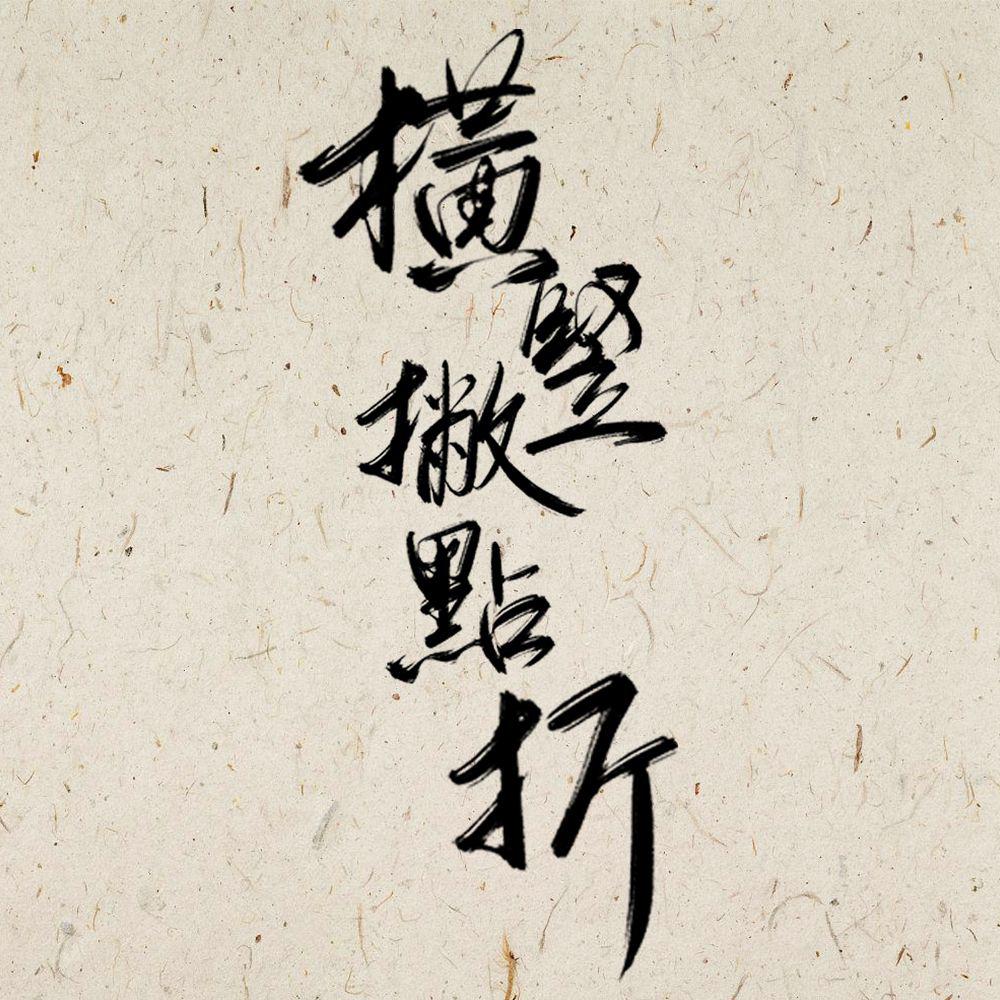 橫豎撇點折